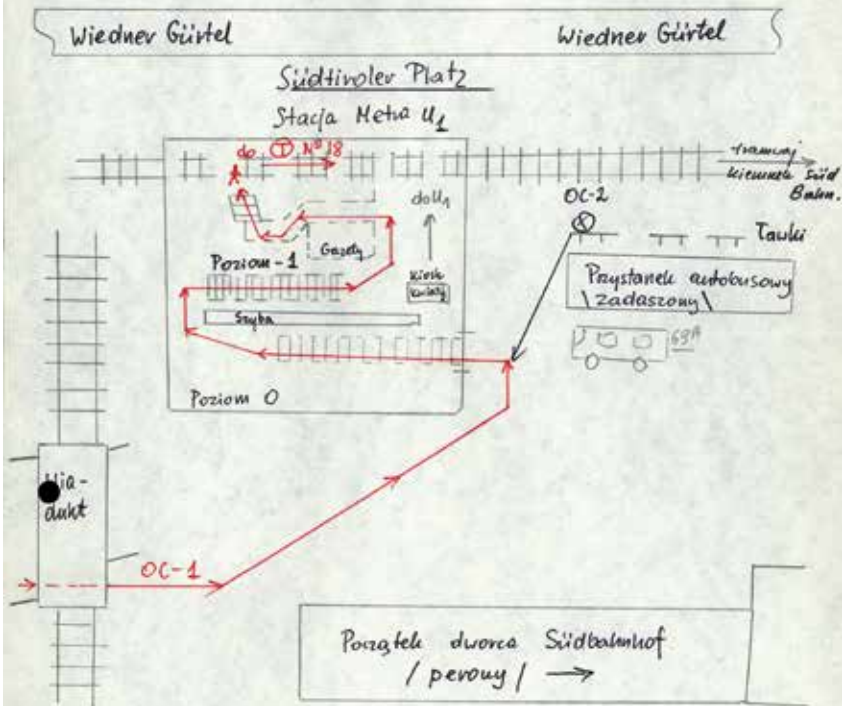 Wiedner Gürtel
Wiedner Gürtel
Südtiroler Platz
Stacja Metra U1
do T Nº 18
tramwaj
kierunek Süd
Bahn.
OC-2
do U1
Ławki
Gazety
Poziom-1
Kiosk
Kwiaty
Przystanek autobusowy
\zadaszony\
Szyba
69A
Poziom 0
Wia-
dukt
OC-1
Początek dworca Südbahnhof
/ perony / →